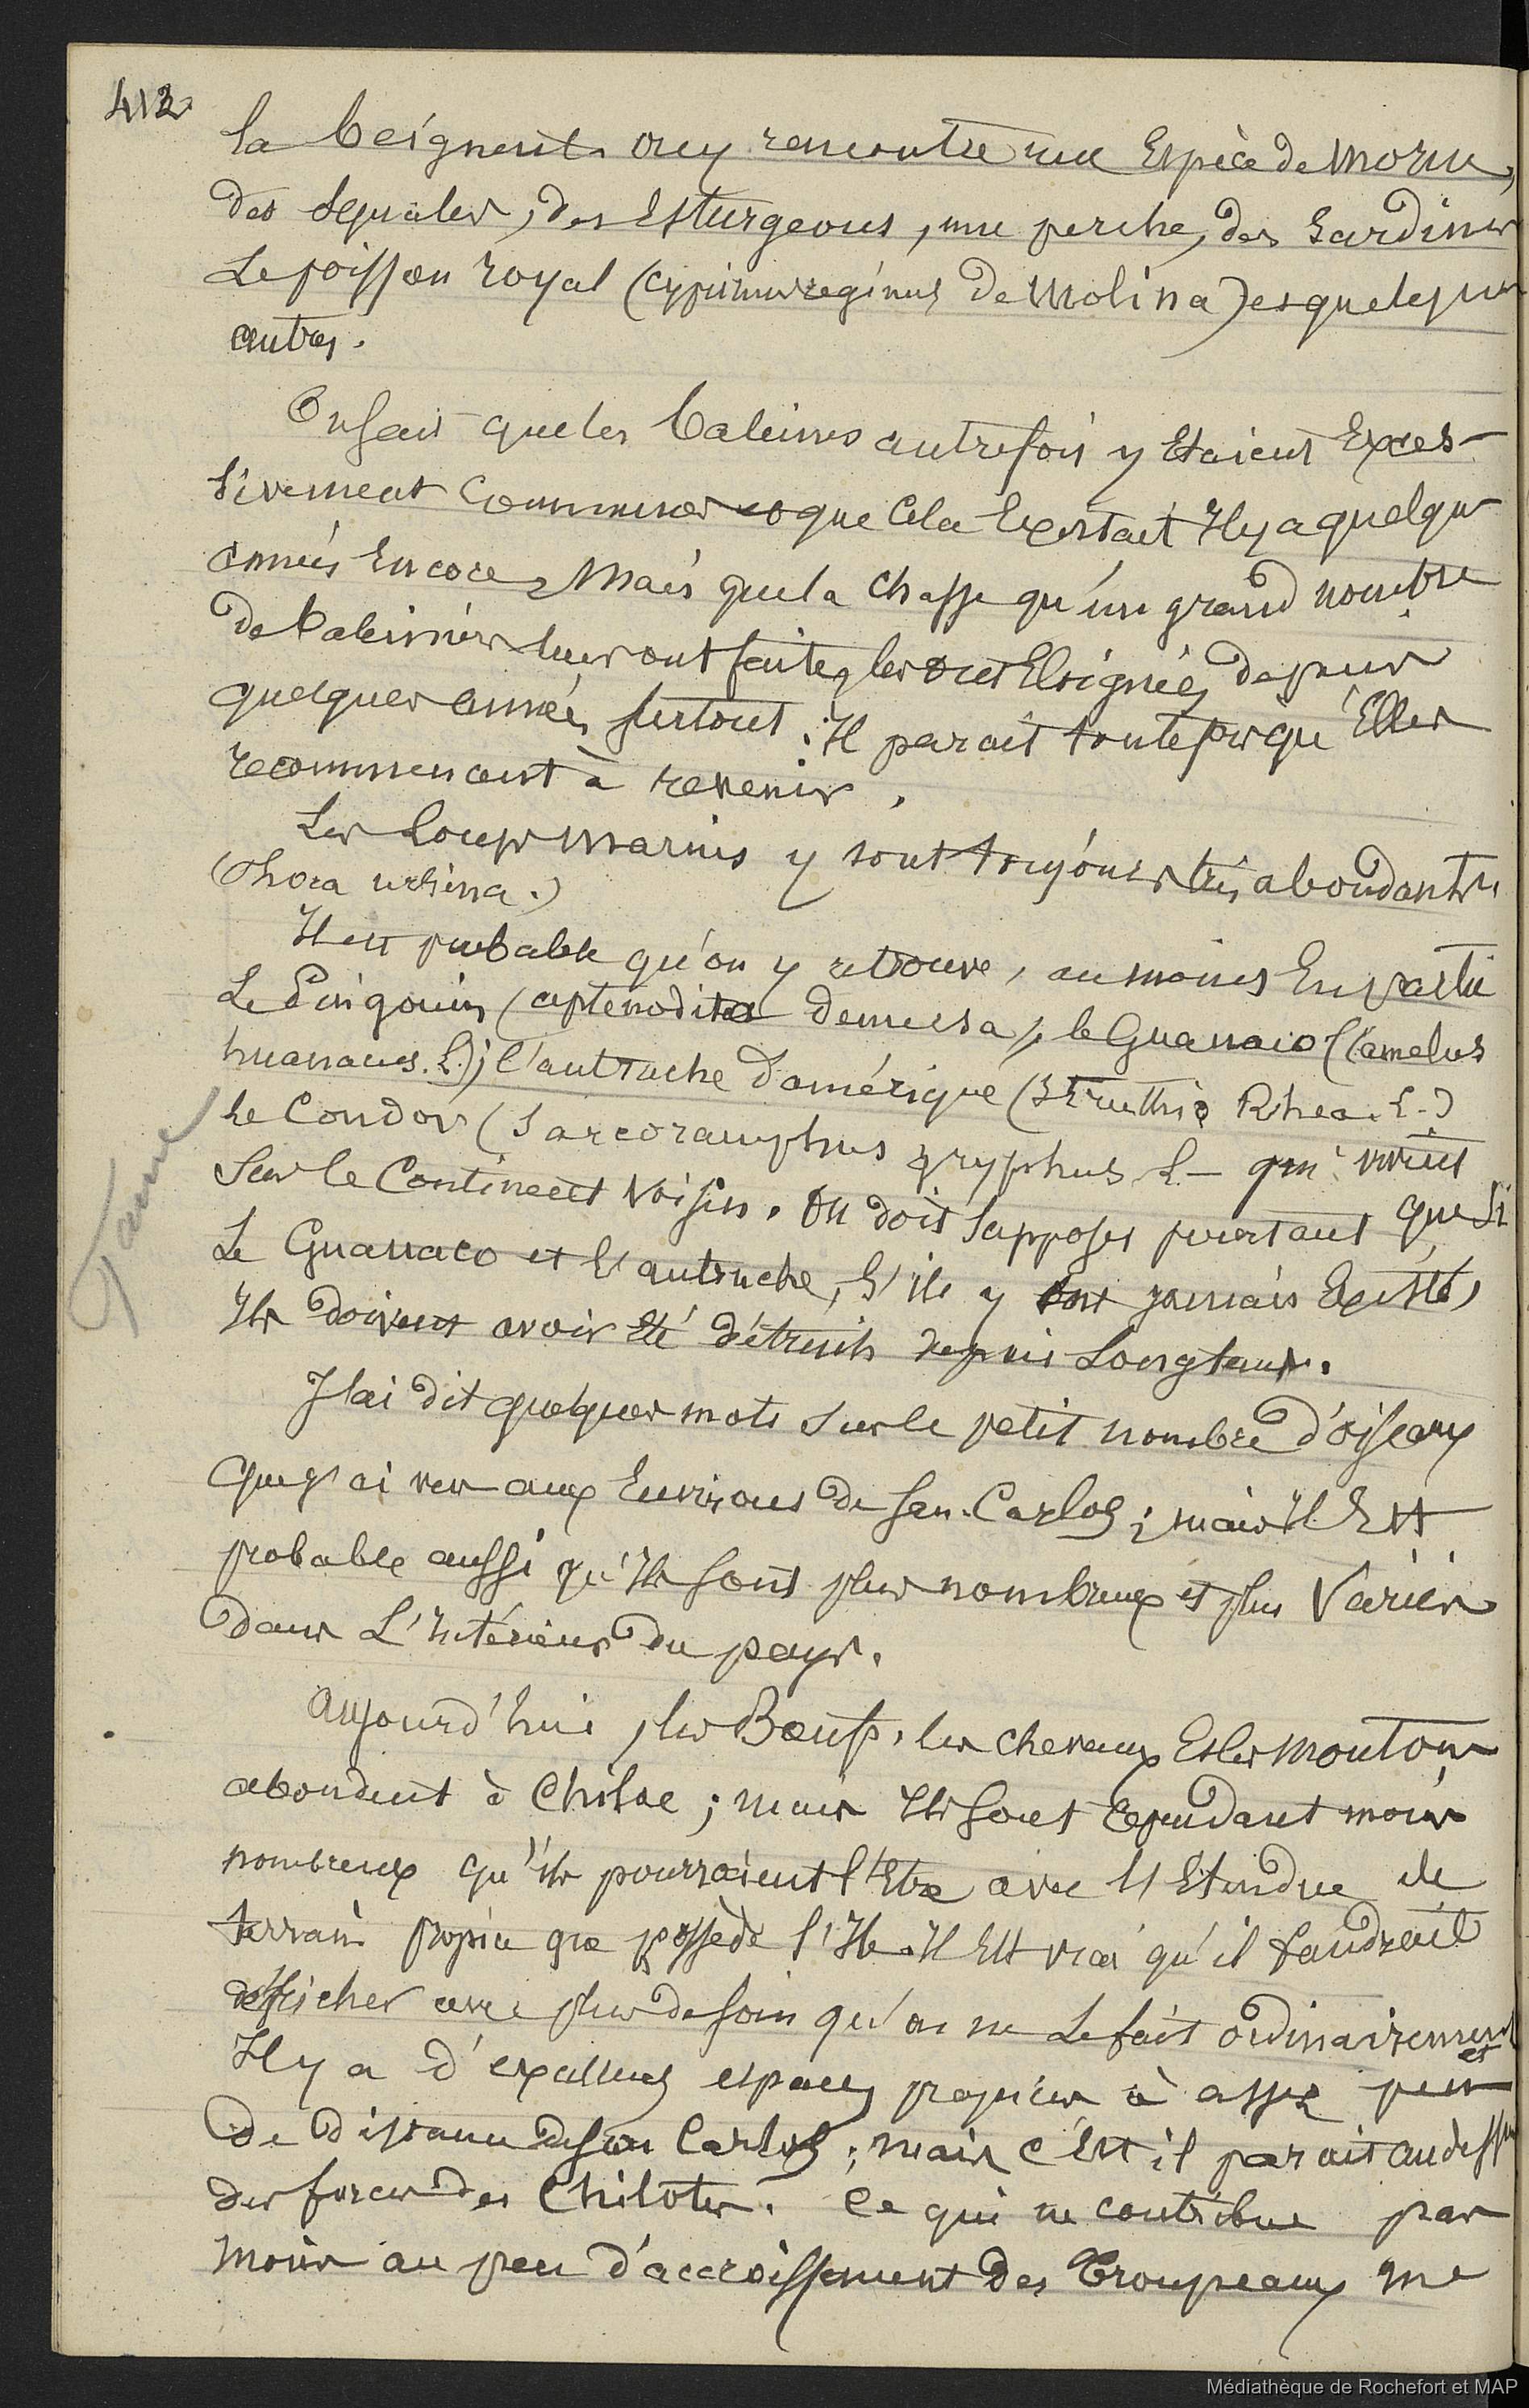 412
la beignent on y rencontre une Espèce de Morue,
des Squales, des Esturgeons, une perche, des Sardines
Le poisson royal (cyprinus reginus de Molina) et quelques
autres.
On sait que les baleines autrefois y Etaient Exces-
sivement Communes et que Cela Existait Il y a quelques
années Encore, Mais que la Chasse qu'un grand nombre
de baleiniers leur ont faite, les ont Eloignées depuis
quelques années surtout ; Il parait toutefois qu'Elles
recommencent à revenir.
Les Loups Marins y sont toujours très abondants
(Phoca ursina.)
Il est probable qu'on y retrouve, au moins En partie
Le Pingouin (aptenodita demersa), le Guanaco (Camelus
huanacus. L.); l'autruche d'amérique (Struthio Rhea. L.)
Le Condor (Sarcoramphus gryphus L- qui vivent
Sur le Continent Voisin. On doit Supposer pourtant que si
Faune
Le Guanaco et l'autruche, s'ils y ont jamais Existé,
Ils doivent avoir Eté détruits depuis Longtems.
J'ai dit quelques mots sur le petit nombre d'oiseaux
que j'ai vus aux Environs de San-Carlos ; mais Il Est
probable aussi qu'Ils sont plus nombreux et plus Variés
dans L'Intérieur du pays.
Aujourd'hui, les Boeufs, les chevaux Et les Moutons
abondent à Chiloe ; mais Ils sont Cependant moins
nombreux qu'ils pourraient l'Etre avec l'Etendue de
terrain propice que possède l'Ile. Il Est vrai qu'il faudrait
défricher avec plus de soin qu'on ne Le fait ordinairement
et
Il y a d'excellens espaces propices à assez peu
de distance de San Carlos ; mais c'Est il parait au dessus
des forces des Chilotes. Ce qui ne contribue pas
moins au peu d'accroissement des Troupeaux me
Médiathèque de Rochefort et MAP